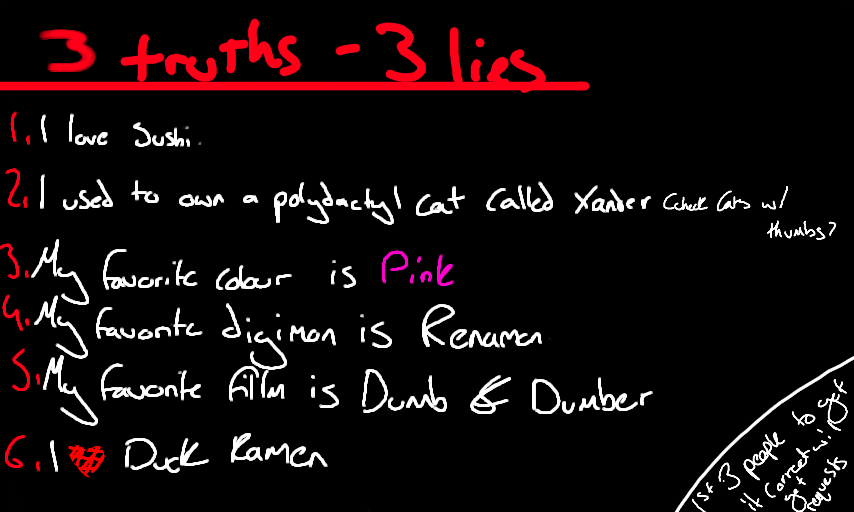 3 truths - 3 lies
1. I love Sushi.
2. I used to own a polydactyl cat called Xander (check cats w/
thumbs?
3. My favorite colour is Pink
4. My favorite digimon is Renamon
5. My favorite film is Dumb & Dumber
6. I ♥ Duck Ramen
1st 3 people to get
it correct will
get
requests